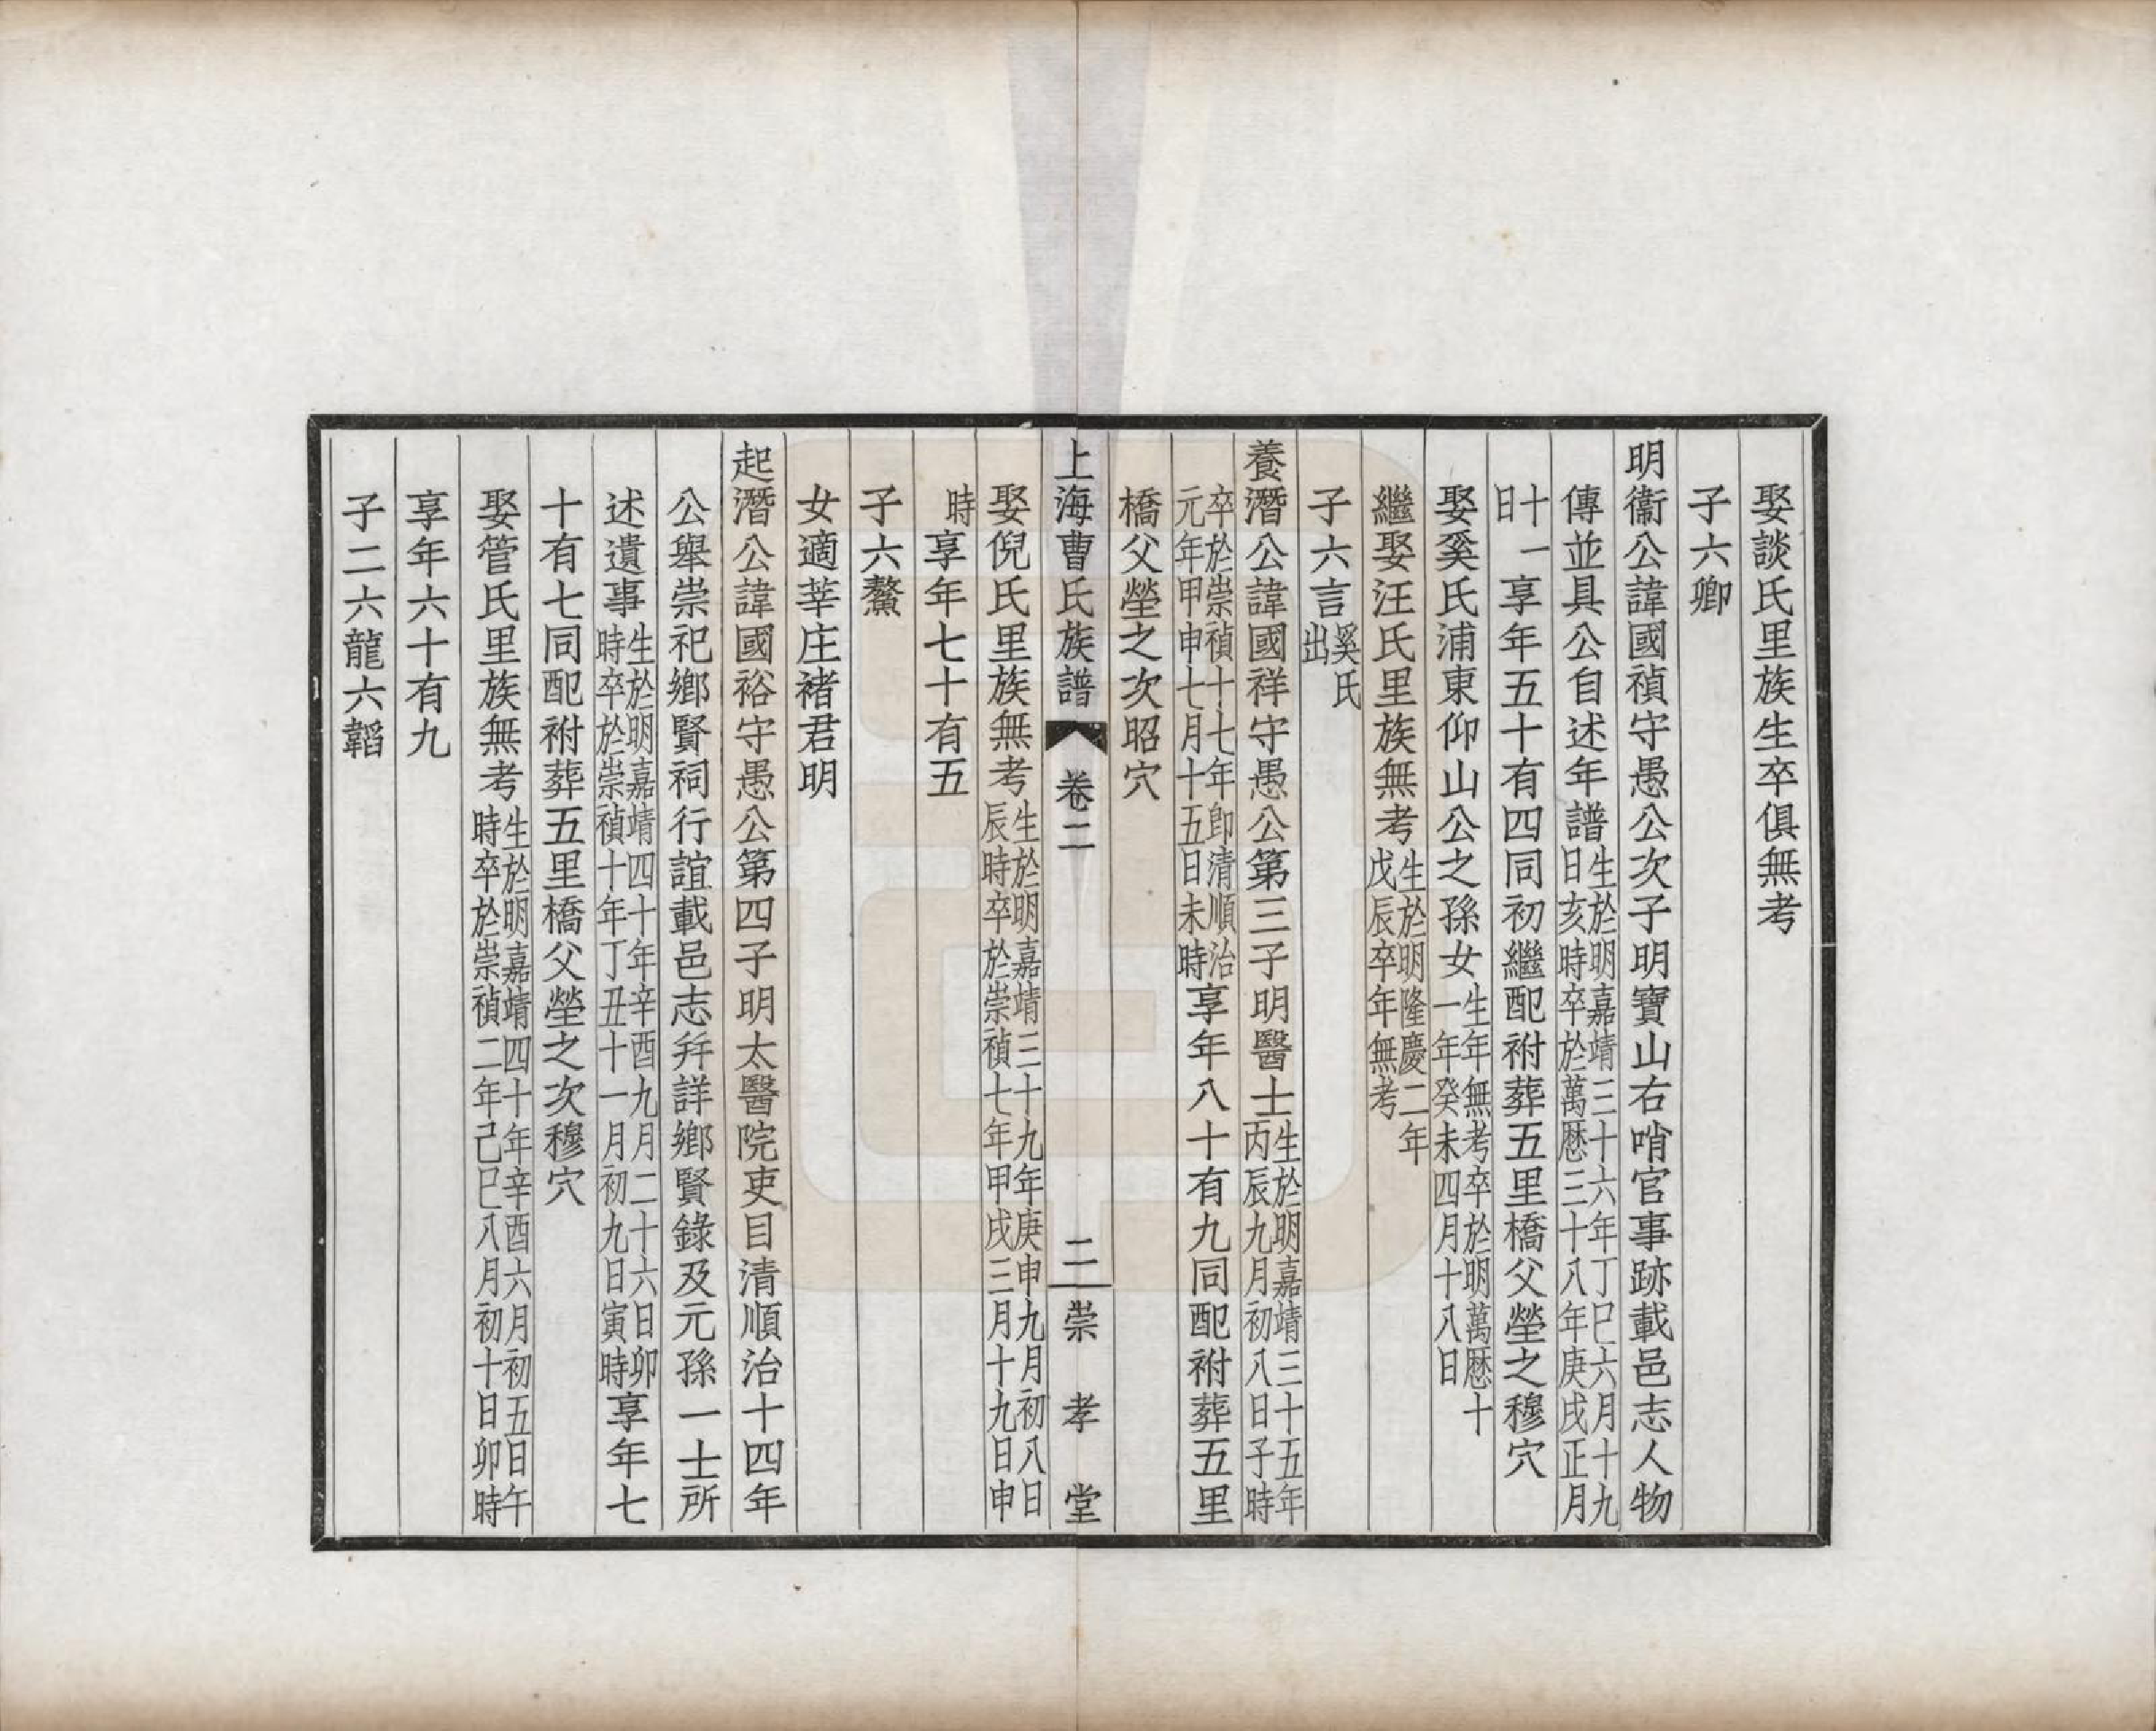 娶談氏里族生卒俱無考
子六卿
明衞公諱國禎守愚公次子明寶山右哨官事跡載邑志人物
傳並具公自述年譜生於明嘉靖三十六年丁巳六月十九日亥時卒於萬曆三十八年庚戌正月
十一日享年五十有四同初繼配祔葬五里橋父塋之穆穴
娶奚氏浦東仰山公之孫女生年無考卒於明萬曆十一年癸未四月十八日
繼娶汪氏里族無考生於明隆慶二年戊辰卒年無考
子六言奚氏出
養潛公諱國祥守愚公第三子明醫士生於明嘉靖三十五年丙辰九月初八日子時
卒於崇禎十七年即清順治元年甲申七月十五日未時享年八十有九同配祔葬五里
橋父塋之次昭穴
上海曹氏族譜 卷二 二 崇孝堂
娶倪氏里族無考生於明嘉靖三十九年庚申九月初八日辰時卒於崇禎七年甲戌三月十九日申
時享年七十有五
子六鰲
女適莘庄褚君明
起潛公諱國裕守愚公第四子明太醫院吏目清順治十四年
公舉崇祀鄉賢祠行誼載邑志幷詳鄉賢錄及元孫一士所
述遺事生於明嘉靖四十年辛酉九月二十六日卯時卒於崇禎十年丁丑十一月初九日寅時享年七
十有七同配祔葬五里橋父塋之次穆穴
娶管氏里族無考生於明嘉靖四十年辛酉六月初五日午時卒於崇禎二年己巳八月初十日卯時
享年六十有九
子二六龍六韜